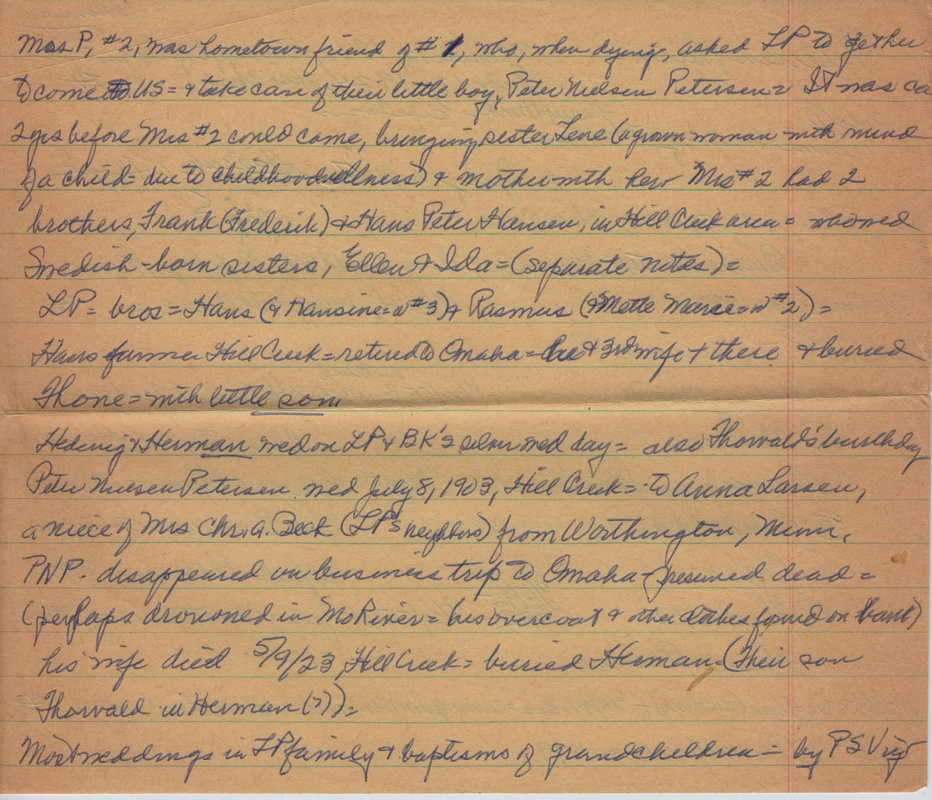 Mrs P, #2, was hometown friend of #1, who, when dying, asked LP to get her
to come to US = & take care of their little boy, Peter Nielsen Petersen = It was ca
2 yrs before Mrs #2 could come, bringing sister Lene (a grown woman with mind
of a child = due to childhood illness) & mother with her Mrs #2 had 2
brothers, Frank (Frederik) & Hans Peter Hansen, in Hill Creek area = who wed
Swedish-born sisters, Ellen & Ida = (separate notes) =
LP = bros = Hans (& Hansine = w #3) & Rasmus (& Mette Marie = w #2) =
Hans farmer Hill Creek = retired to Omaha = he & 3rd wife + there & buried
Thone = with little son
Hedwig & Herman wed on LP & BK's silver wed day = also Thorvald's birthday
Peter Nielsen Petersen wed July 8, 1903, Hill Creek = to Anna Larsen,
a niece of Mrs Chr. A. Beck (LP's neighbors) from Worthington, Minn.
PNP - disappeared on business trip to Omaha - (presumed dead =
(perhaps drowned in Mo River = his overcoat & other clothes found on bank)
his wife died 5/9/23, Hill Creek = buried Herman - (Their son
Thorvald in Herman (?)) =
Most weddings in LP family & baptisms of grandchildren = by PS Vig